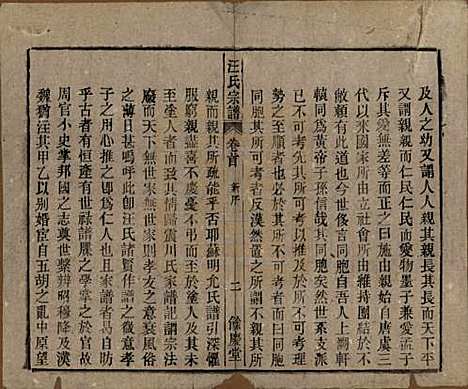 及人之幼又謂人人親其親長其長而天下平
又謂親親而仁民仁民而愛物墨子兼愛孟子
斥其愛無差等而正之此也中國自唐虞三
代以來國家所由立社會所由維持團結於不
敝者無他在此而已今世後各同胞自吾人上溯軒
轅同為黃帝子孫信哉其同胞矣而世系支派
不可考先其所可考而及於不可考理
勢之必可考而可考者不可考而曰同胞
同胞其所可考者反漠然置之所謂不親其
汪氏宗譜
卷首
新序
二
餘慶堂
親而親其所疏能乎否耶蘇明允氏譜引深懼
服窮親盡喜不慶憂不弔而至於塗人者
至塗人者而一體歸震川氏家譜記謂宗法
廢而天下無世家無世家則孝友之意衰風俗
之薄日甚嗚呼此卽汪氏諸賢之微意
于之用心乎抑吾聞之仁人也者
乎古者有恒產有世祿譜牒之學掌之於官故
周官小史掌邦國之志奠世繫辨昭穆降及漢
魏猶汪其甲乙以別婚宦自五胡之亂中原望